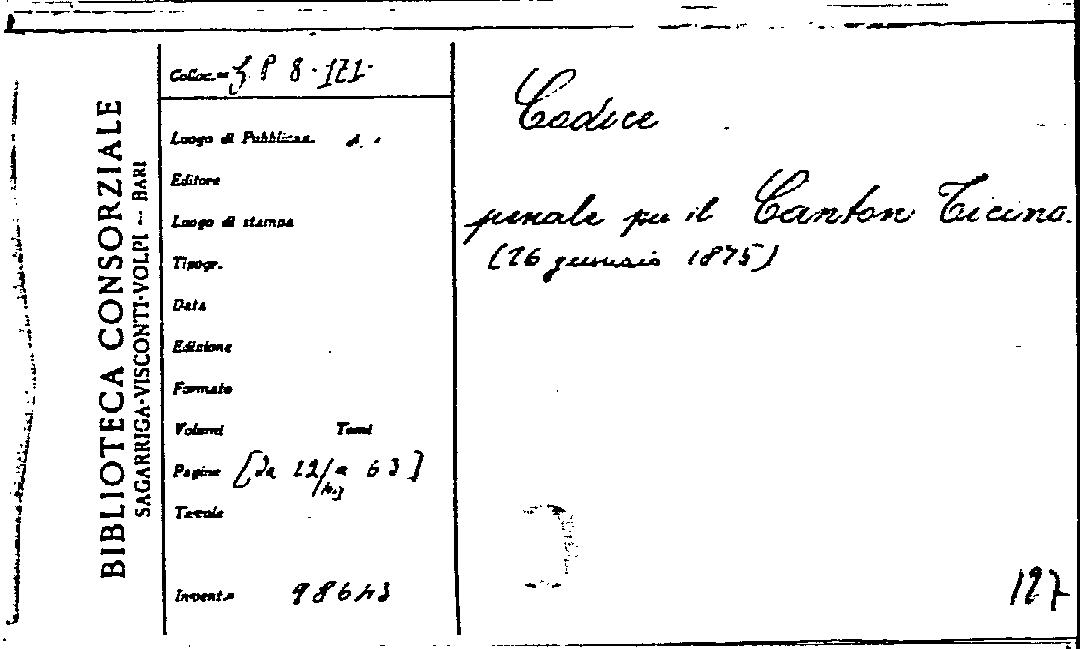 BIBLIOTECA CONSORZIALE
SAGARRIGA-VISCONTI-VOLPI -- BARI
Colloc.=
Luogo di Pubblicaz.
Editore
Luogo di stampa
Tipogr.
Data
Edizione
Formato
Volumi Tomi
Pagine [da 12 a 63]
Tavole
Invent.
Codice
penale per il Canton Ticino.
(26 gennaio 1875)
127